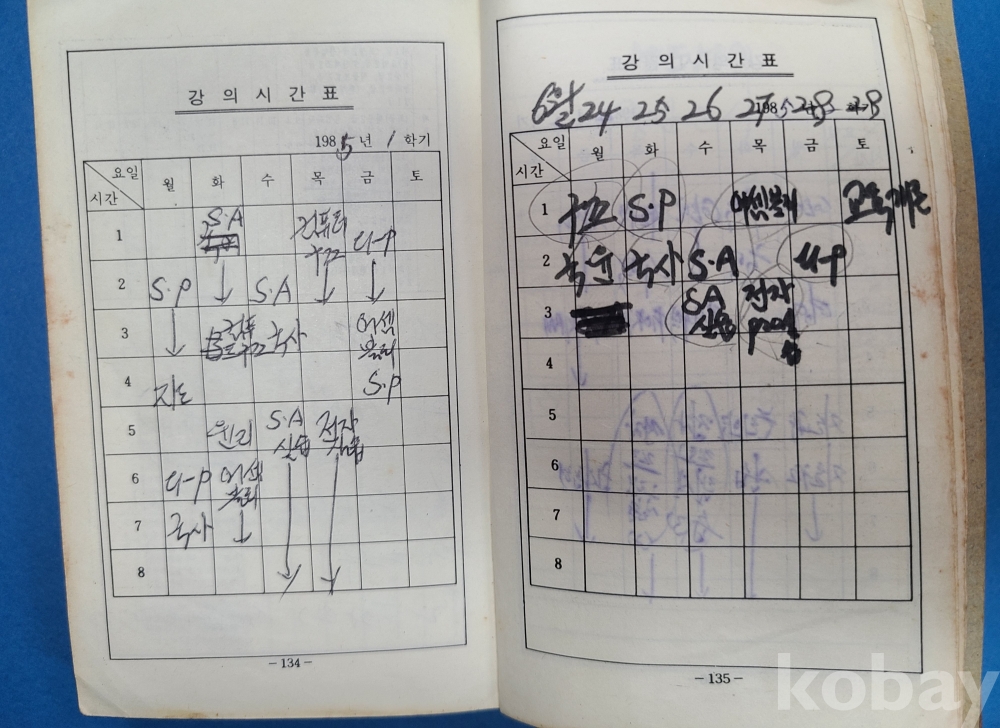 강 의 시 간 표
1985년 1학기
요일
시간
월 화 수 목 금 토
1 S·A 컴퓨터 구조 u-p
2 S.P S.A
3 국사 어셈블리
4 지도 S.P
5 윤리 S.A 실습 전자
6 u-p 어셈블리
7 국사
8
- 134 -
강 의 시 간 표
6월 24 25 26 27 1985 28 학기
요일
시간
월 화 수 목 금 토
1 구조 S.P 어셈블리
2 국윤 국사 S.A u-p
3 S.A 실습 전자
4
5
6
7
8
- 135 -
kobay